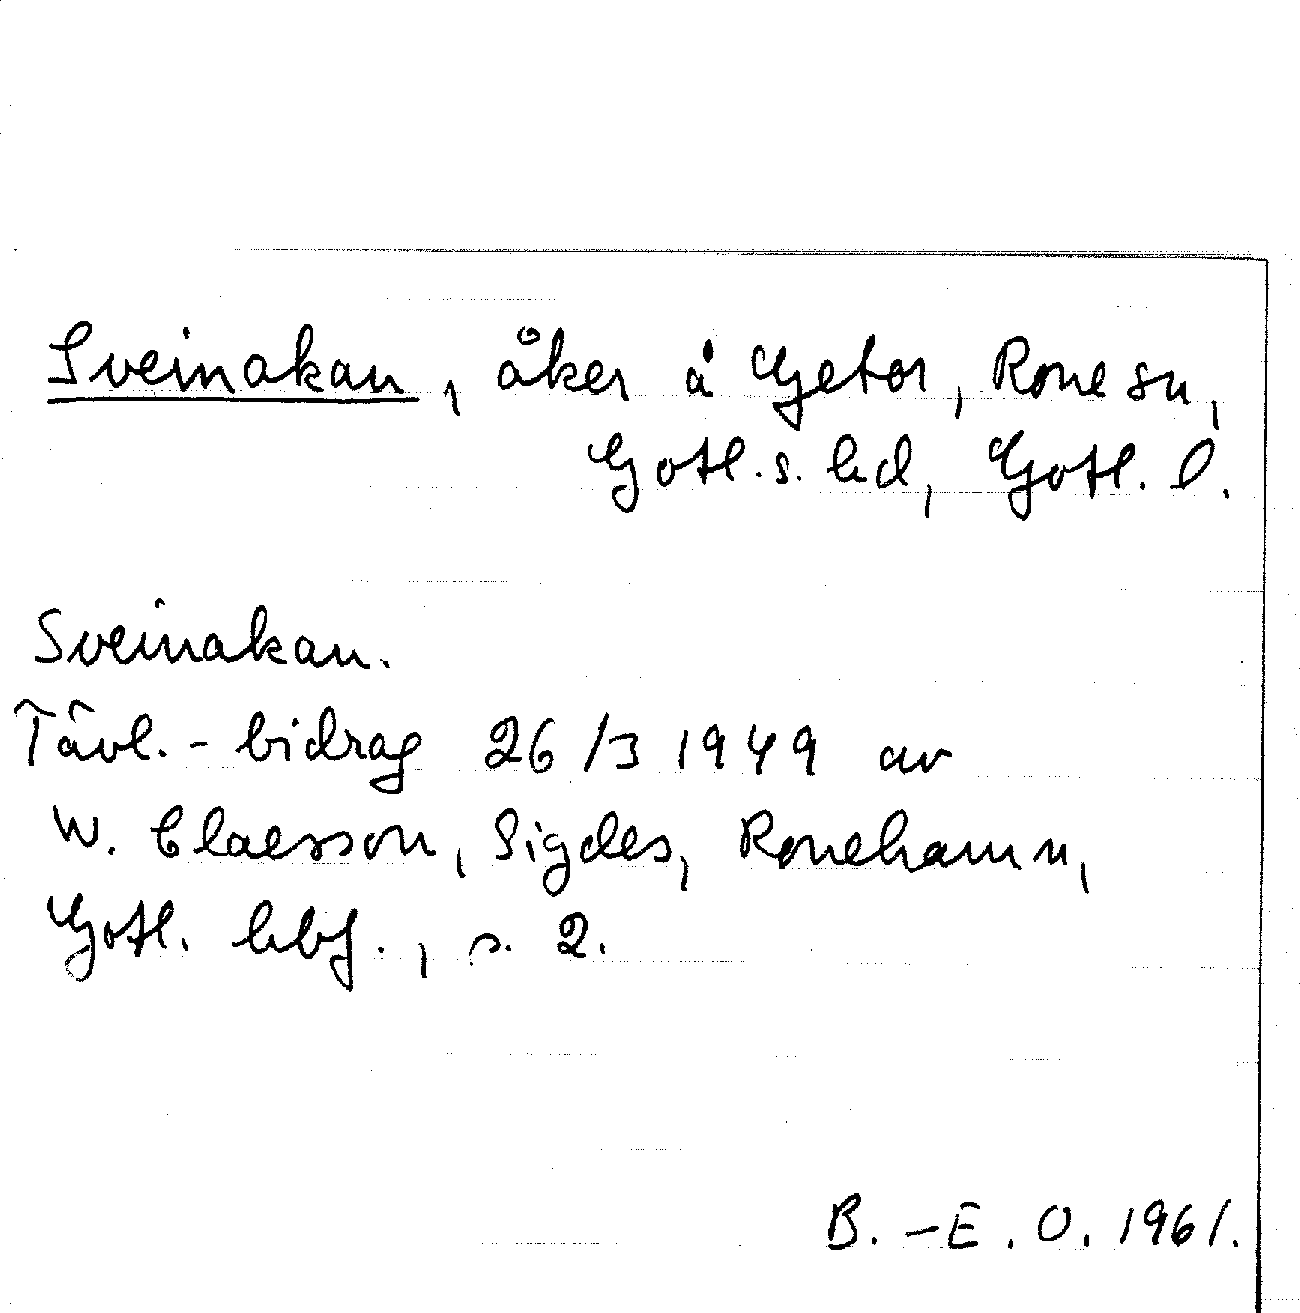 Sveinakan, åker å Gjetor, Rone sn,
Gotl. s. hd, Gotl. l.
Sveinakan.
Tävl.-bidrag 26/3 1949 av
W. Claesson, Sigdes, Ronehamn,
Gotl. hbf., s. 2.
B.-E. O. 1961.